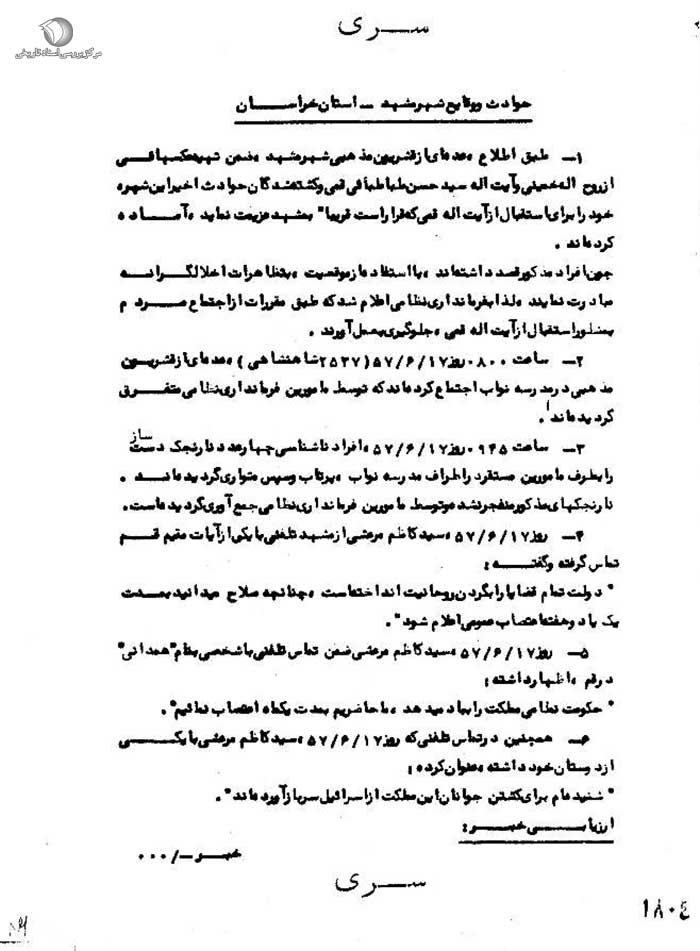 سری
مرکز بررسی اسناد تاریخی
حوادث ووقایع شهرمشهد – استان خراسان
۱– طبق اطلاع ،عده‌ای از قشریون مذهبی شهرمشهد ،ضمن تهیه عکسهائی
از روح اله خمینی وآیت اله سید حسن طباطبائی قمی وکشته‌شدگان حوادث اخیر این شهر،
خود را برای استقبال از آیت اله قمی که قرار است قریبا" بمشهد عزیمت نماید ،آماده
کرده‌اند .
چون افراد مذکور قصد داشته‌اند ،با استفاده از موقعیت ،بتظاهرات اخلالگرانه
مبادرت نمایند ،لذا بفرمانداری نظامی اعلام شد که طبق مقررات از اجتماع مردم
بمنظور استقبال از آیت اله قمی ،جلوگیری بعمل آورند .
۲– ساعت ۰۸۰۰ روز ۵۷/۶/۱۷ (۲۵۳۷ شاهنشاهی) ،عده‌ای از قشریون
مذهبی در مدرسه نواب اجتماع کرده‌اند که توسط مامورین فرمانداری نظامی متفرق
گردیده‌اند .
۳– ساعت ۰۹۴۵ روز ۵۷/۶/۱۷ ،افراد ناشناسی چهار عدد نارنجک دست ساز
را بطرف مامورین مستقر در اطراف مدرسه نواب ،پرتاب وسپس متواری گردیده‌اند .
نارنجکهای مذکور منفجر نشده وتوسط مامورین فرمانداری نظامی جمع آوری گردیده‌است.
۴– روز ۵۷/۶/۱۷ ،سید کاظم مرعشی از مشهد تلفنی با یکی از آیات مقیم قم
تماس گرفته وگفته :
"دولت تمام قضایا را بگردن روحانیت انداخته‌است ،چنانچه صلاح میدانید بمدت
یک یا دوهفته اعتصاب عمومی اعلام شود" .
۵– روز ۵۷/۶/۱۷ ،سید کاظم مرعشی ضمن تماس تلفنی با شخصی بنام "همدانی"
در قم ،اظهار داشته :
"حکومت نظامی مملکت را بباد میدهد ،ما حاضریم بمدت یکماه اعتصاب نمائیم" .
۶– همچنین در تماس تلفنی که روز ۵۷/۶/۱۷ ،سید کاظم مرعشی با یکی
از دوستان خود داشته ،عنوان کرده :
"شنیده‌ام برای کشتن جوانان این مملکت از اسرائیل سرباز آورده‌اند" .
ارزیابی خبر :
خبر –/۰۰۰
سری
۱۸۰٤